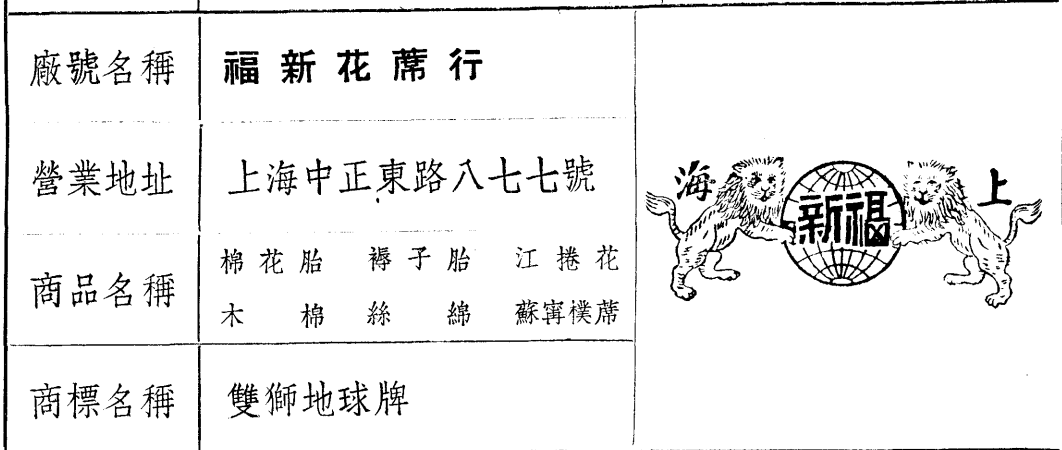 廠號名稱 福新花蓆行
營業地址 上海中正東路八七七號
商品名稱 棉花胎 褥子胎 江捲花
木棉 絲綿 蘇寗樸蓆
商標名稱 雙獅地球牌
上海
福新